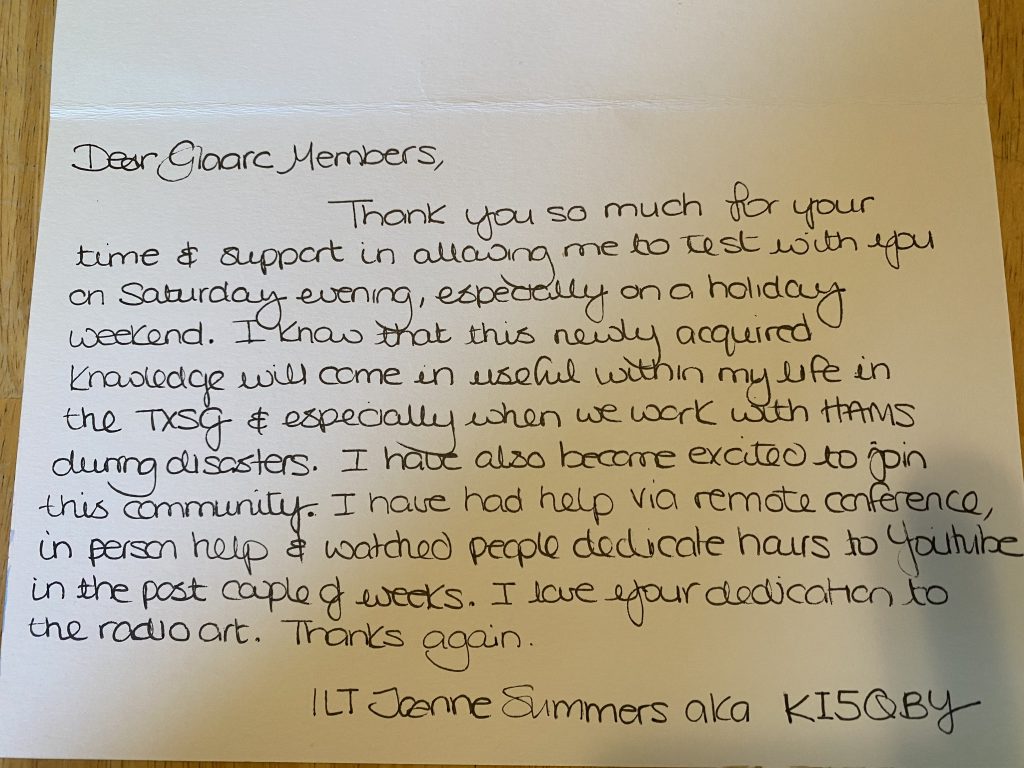 Dear Glaarc Members,
Thank you so much for your
time & support in allowing me to test with you
on Saturday evening, especially on a holiday
weekend. I know that this newly acquired
knowledge will come in useful within my life in
the TXSG & especially when we work with HAMS
during disasters. I have also become excited to join
this community. I have had help via remote conference,
in person help & watched people dedicate hours to Youtube
in the past couple of weeks. I love your dedication to
the radio art. Thanks again.
1LT Joanne Summers aka KI5QBY